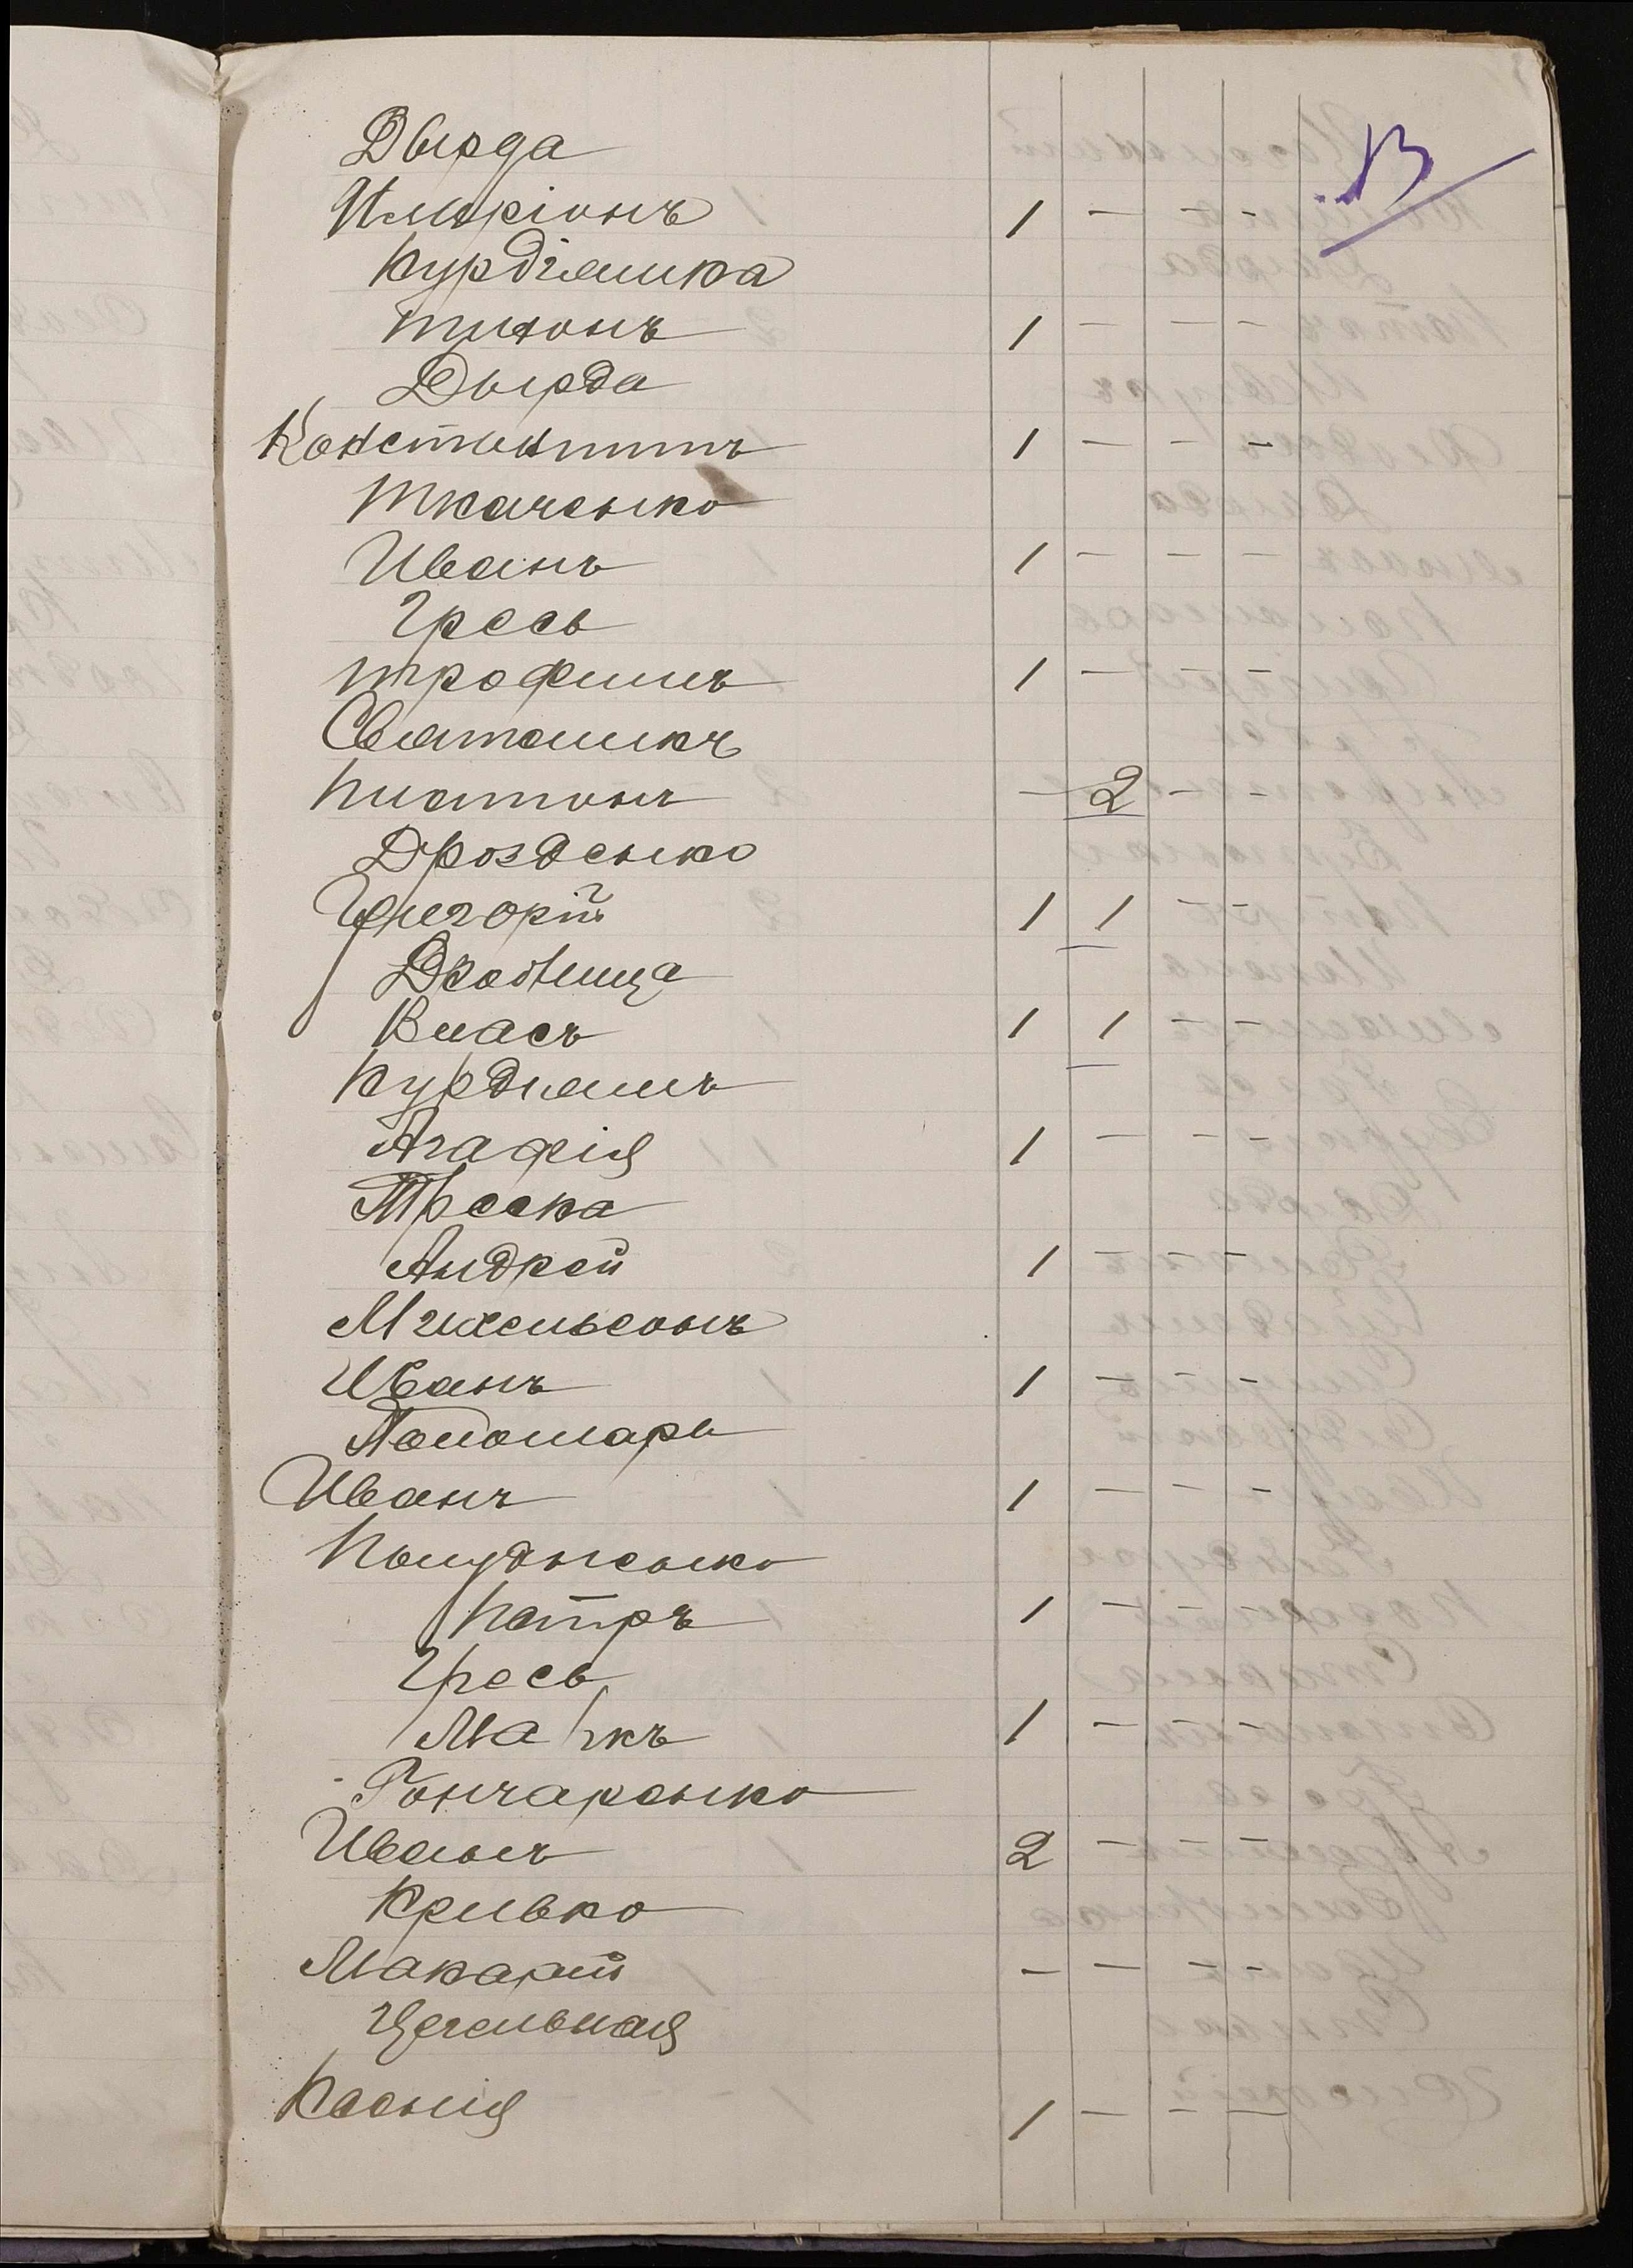 13
Дырда
Иларіонъ 1 — - -
Курдіашка
Тихонъ 1 — — —
Дырда
Константинъ 1 — - -
Ткаченко
Иванъ 1 — — —
Гресь
Трофимъ 1 — - -
Святошикъ
Платонъ — 2 - -
Дрозденко
Григорій 1 1 - -
Дробница
Власъ 1 1 - -
Курдіашъ
Агафія 1 — - -
Треска
Андрей 1 - - -
Михельсонъ
Иванъ 1 - - -
Пономарь
Иванъ 1 — - -
Петръ 1 - - -
Гресь
Маркъ 1 - - -
Гончаренко
Иванъ 2 — - -
Кривко
Макарій — — - -
Цегельная
Ксенія 1 — - —